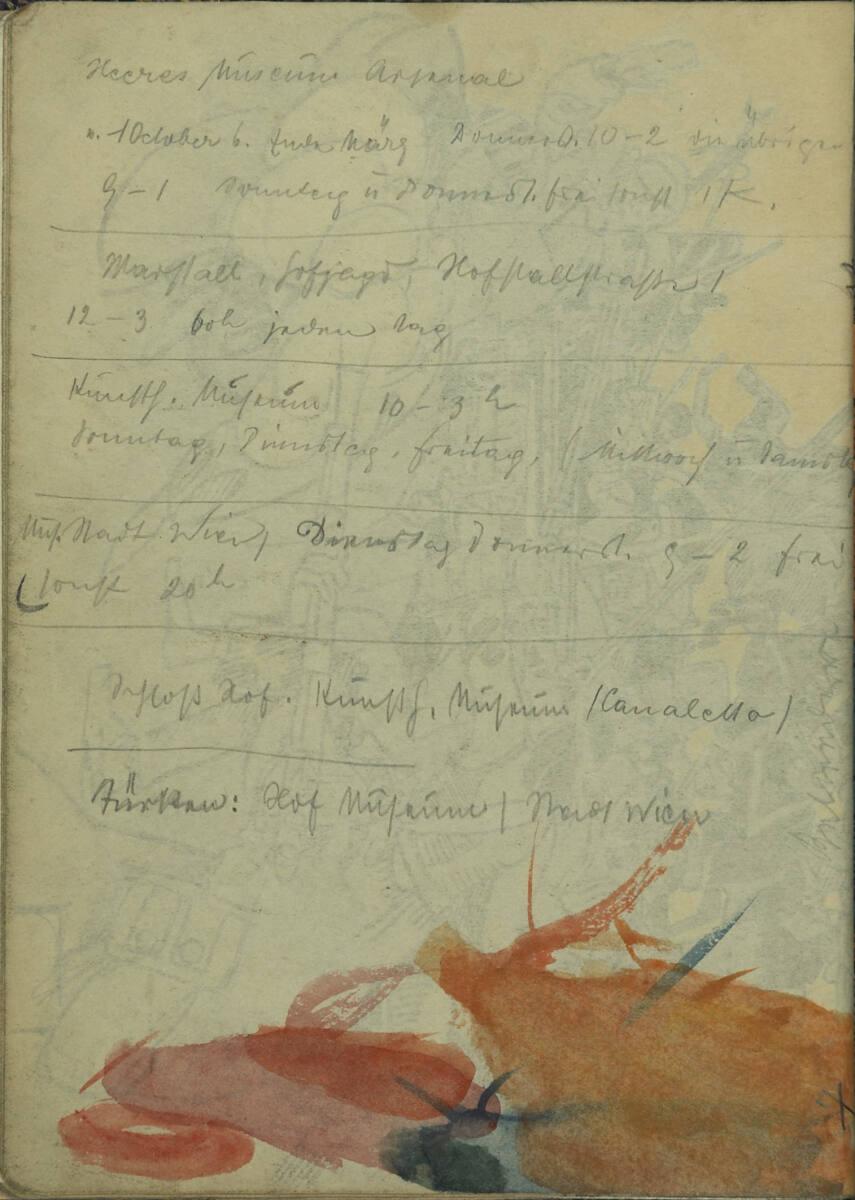 Heeres Museum Arsenal
v. 1 October b. Ende März Donnerst. 10 – 2 die übrigen
9 – 1 Sonntag u Donnerst. frei sonst 1 K.
Marstall, Hofjagd, Hofstallstrasse 1
12 – 3 60h jeden Tag
Kunsth. Museum 10 – 3 h
Sonntag, Dienstag, Freitag, (Mittwoch u Samst
Mus Stadt Wien) Dienstag Donnerst. 9 – 2 frei
(sonst 20 h
Schloß Hof. Kunsth. Museum (Canaletto)
Türken: Hof Museum / Stadt Wien